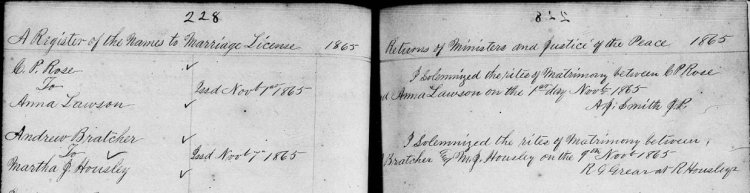 228
A Register of the Names to Marriage License 1865
C. P. Rose
To
Issd Novb 1st 1865
Anna Lawson
Andrew Bratcher
To
Issd Novb 7th 1865
Martha J Housley
228
Returns of Ministers and Justice of the Peace 1865
I Solemnized the rites of Matrimony between C P Rose
and Anna Lawson on the 1st day Novb 1865
A J Smith J.P.
I Solemnized the rites of Matrimony between,
Bratcher & M J Housley on the 9th Novb 1865
R G Grear at R Housleys